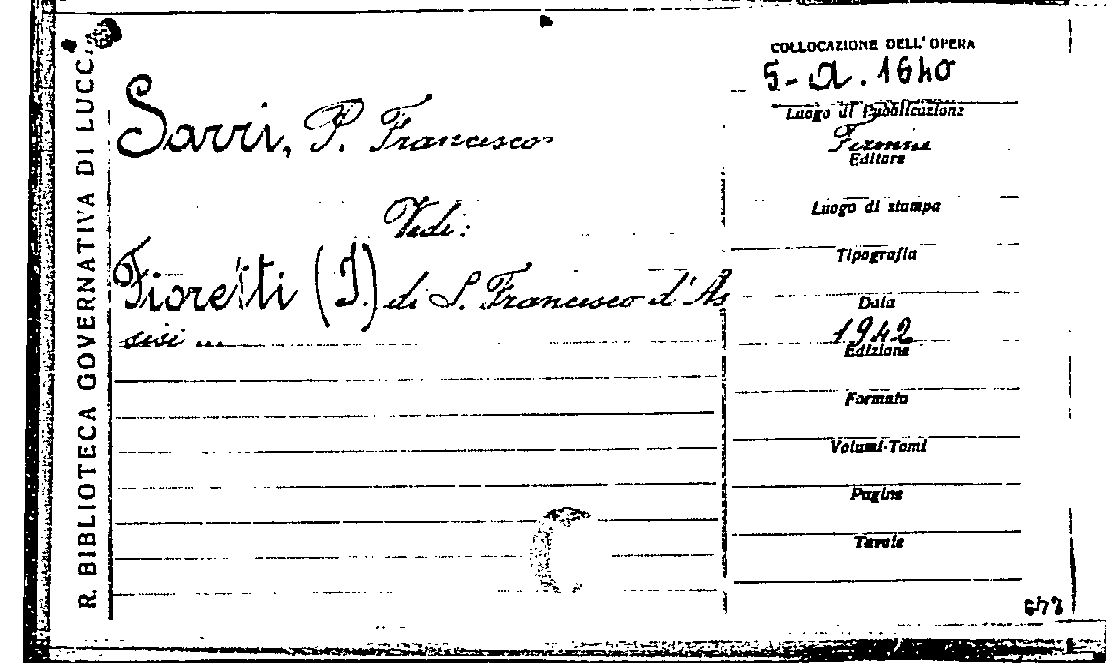 R. BIBLIOTECA GOVERNATIVA DI LUCCA
Sarri, P. Francesco
Vedi:
Fioretti (I.) di S. Francesco d'As
sisi ...
COLLOCAZIONE DELL'OPERA
5-a. 1640
Luogo di Pubblicazione
Firenze
Editore
Luogo di stampa
Tipografia
Data
1942
Edizione
Formato
Volumi-Tomi
Pagine
Tavole